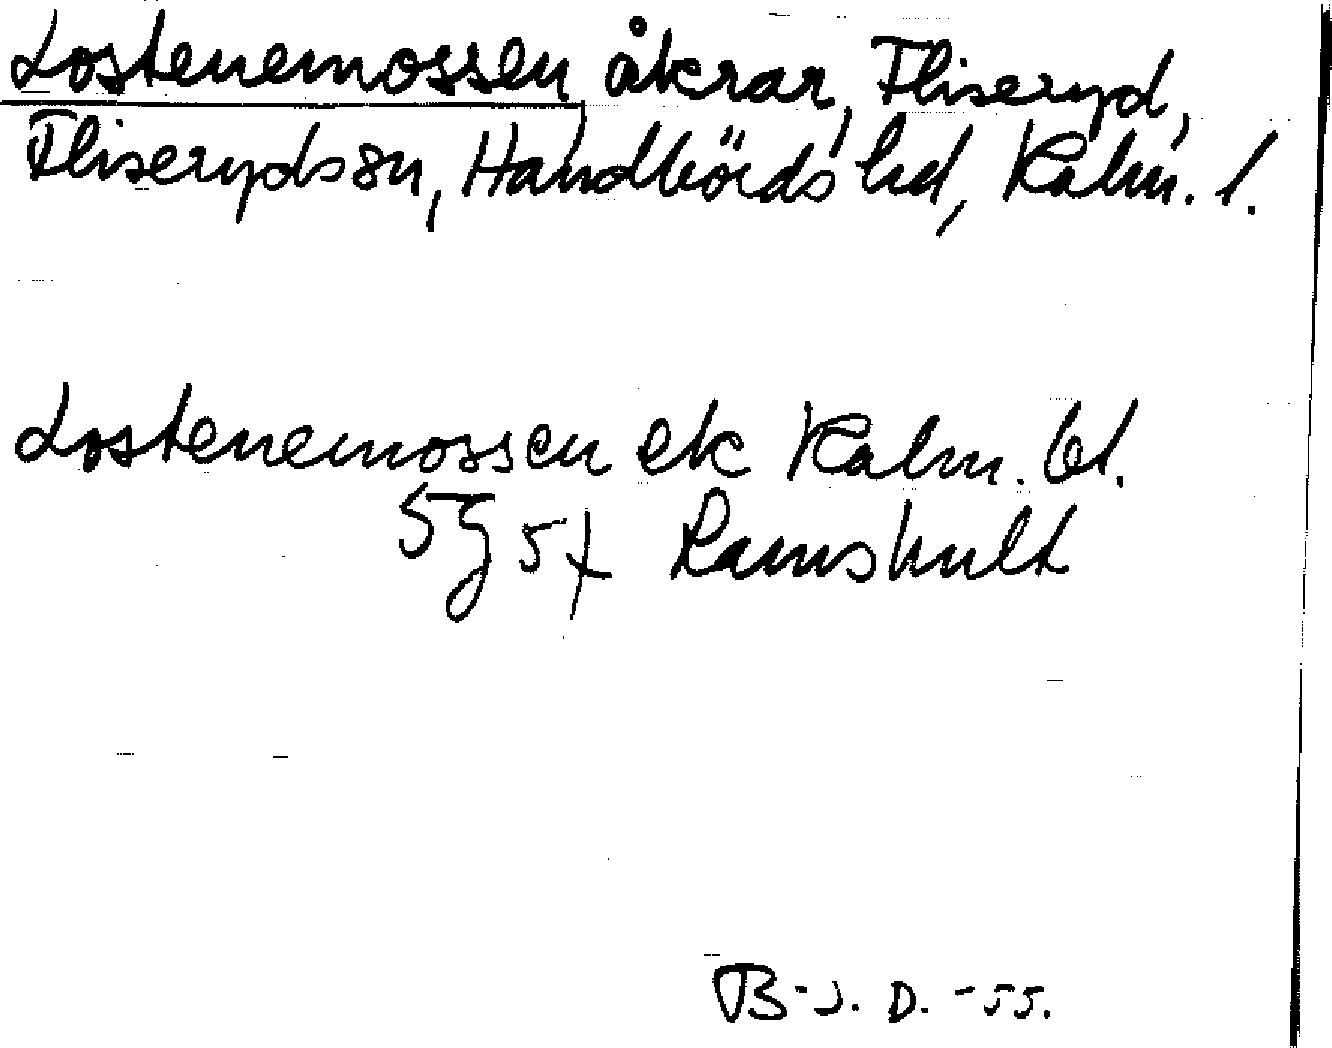 Lostenemossen, åkrar, Fliseryd,
Fliseryds sn, Handbörds hd, Kalm. l.
Lostenemossen ek Kalm. bl.
5G 5f Ramshult
B-J. D. -55.